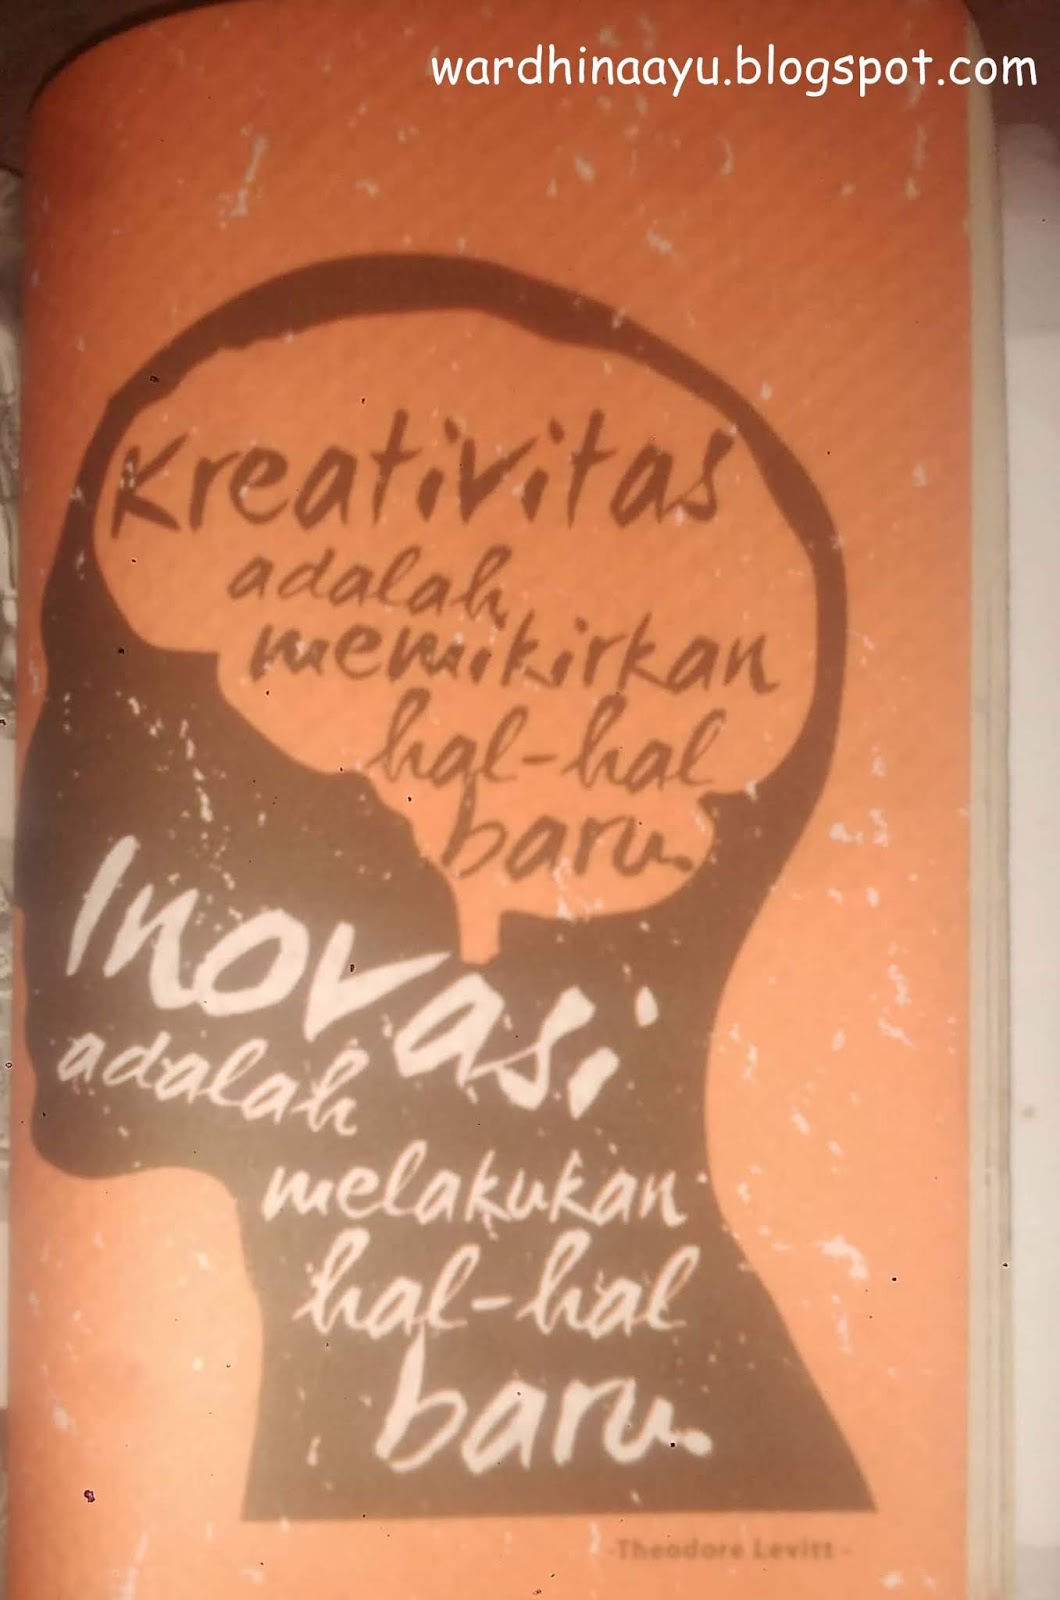 wardhinaayu.blogspot.com
Kreativitas
adalah
memikirkan
hal-hal
baru.
Inovasi
adalah
melakukan
hal-hal
baru.
-Theodore Levitt -